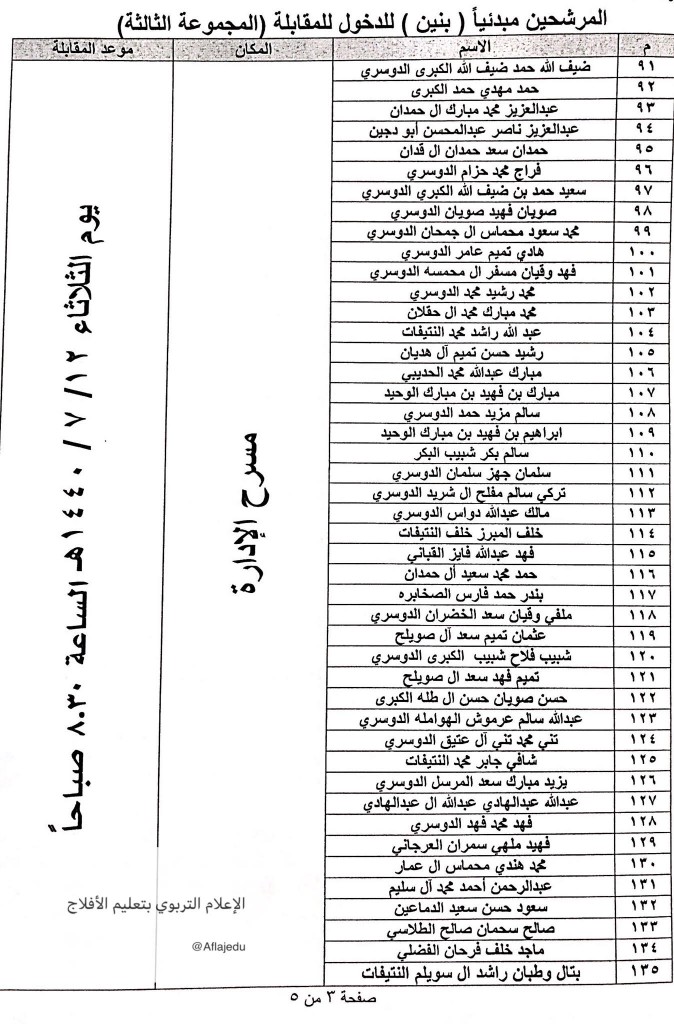 المرشحين مبدئياً ( بنين ) للدخول للمقابلة (المجموعة الثالثة)
م الاسم المكان موعد المقابلة
٩١ ضيف الله حمد ضيف الله الكبرى الدوسري
٩٢ حمد مهدي حمد الكبرى
٩٣ عبدالعزيز محمد مبارك ال حمدان
٩٤ عبدالعزيز ناصر عبدالمحسن أبو دجين
٩٥ حمدان سعد حمدان ال قدان
٩٦ فراج محمد حزام الدوسري
٩٧ سعيد حمد بن ضيف الله الكبري الدوسري
٩٨ صويان فهيد صويان الدوسري
٩٩ محمد سعود محماس ال جمحان الدوسري
١٠٠ هادي تميم عامر الدوسري
١٠١ فهد وقيان مسفر ال محمسه الدوسري
١٠٢ محمد رشيد محمد الدوسري
١٠٣ محمد مبارك محمد ال حقلان
١٠٤ عبد الله راشد محمد النتيفات
١٠٥ رشيد حسن تميم آل هديان
١٠٦ مبارك عبدالله محمد الحديبي
١٠٧ مبارك بن فهيد بن مبارك الوحيد
١٠٨ سالم مزيد حمد الدوسري
١٠٩ ابراهيم بن فهيد بن مبارك الوحيد
١١٠ سالم بكر شبيب البكر
١١١ سلمان جهز سلمان الدوسري
١١٢ تركي سالم مفلح ال شريد الدوسري
١١٣ مالك عبدالله دواس الدوسري
١١٤ خلف المبرز خلف النتيفات
١١٥ فهد عبدالله فايز القباني
١١٦ حمد محمد سعيد أل حمدان
١١٧ بندر حمد فارس الصخابره
١١٨ ملفي وقيان سعد الخضران الدوسري
١١٩ عثمان تميم سعد آل صويلح
١٢٠ شبيب فلاح شبيب الكبرى الدوسري
١٢١ تميم فهد سعد ال صويلح
١٢٢ حسن صويان حسن ال طله الكبرى
١٢٣ عبدالله سالم عرموش الهوامله الدوسري
١٢٤ تني محمد تني آل عتيق الدوسري
١٢٥ شافي جابر محمد النتيفات
١٢٦ يزيد مبارك سعد المرسل الدوسري
١٢٧ عبدالله عبدالهادي عبدالله ال عبدالهادي
١٢٨ فهد محمد فهد الدوسري
١٢٩ فهيد ملهي سمران العرجاني
١٣٠ محمد هندي محماس ال عمار
١٣١ عبدالرحمن أحمد محمد آل سليم
١٣٢ سعود حسن سعيد الدماعين
١٣٣ صالح سحمان صالح الطلاسي
١٣٤ ماجد خلف فرحان الفضلي
١٣٥ بتال وطبان راشد ال سويلم النتيفات
مسرح الإدارة
يوم الثلاثاء ١٢ / ٧ / ١٤٤٠هـ الساعة ٨.٣٠ صباحاً
الإعلام التربوي بتعليم الأفلاج
@Aflajedu
صفحة ٣ من ٥